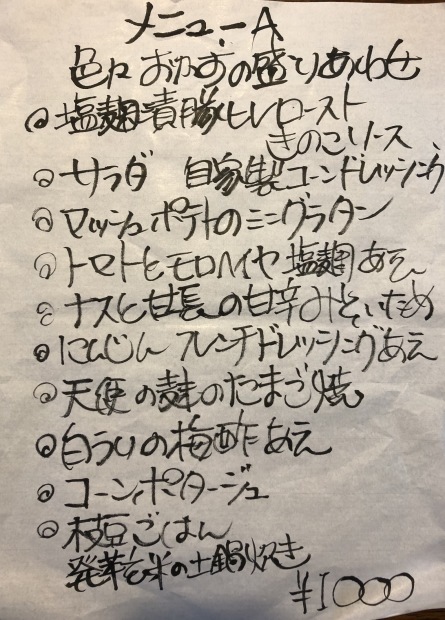 メニューA
色々おかずの盛りあわせ
◎塩麹漬豚ヒレロースト
きのこソース
◎サラダ 自家製コーンドレッシング
◎マッシュポテトのミニグラタン
◎トマトとモロヘイヤ塩麹あえ
◎ナスと甘長の甘辛みそいため
◎にんじんフレンチドレッシングあえ
◎天使の麩のたまご焼
◎白うりの梅酢あえ
◎コーンポタージュ
◎枝豆ごはん
発芽玄米の土鍋炊き
¥1000